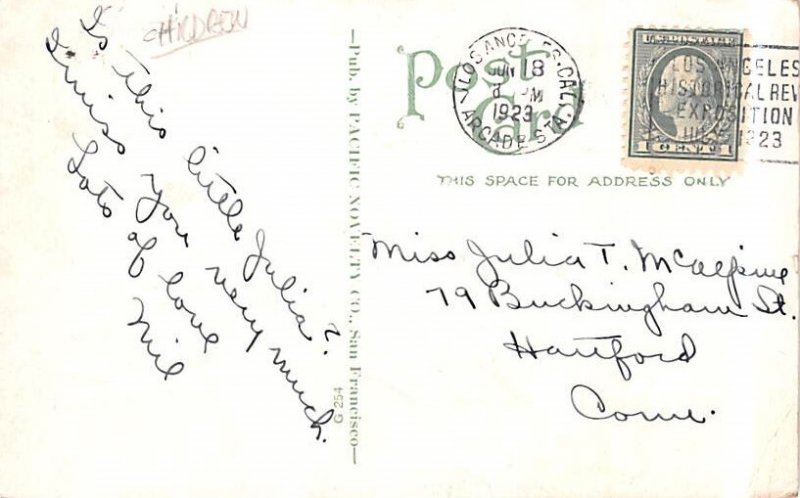 CHILDREN
Is this little Julia?
I miss you very much.
Lots of love
Mil
—Pub. by PACIFIC NOVELTY CO., San Francisco—
G 254
Post Card
LOS ANGELES, CAL.
JUN 18
8 PM
1923
ARCADE STA.
U.S. POSTAGE
1 CENT 1
LOS ANGELES
HISTORICAL REV
EXPOSITION
1923
THIS SPACE FOR ADDRESS ONLY
Miss Julia T. McAlpine
79 Buckingham St.
Hartford
Conn.